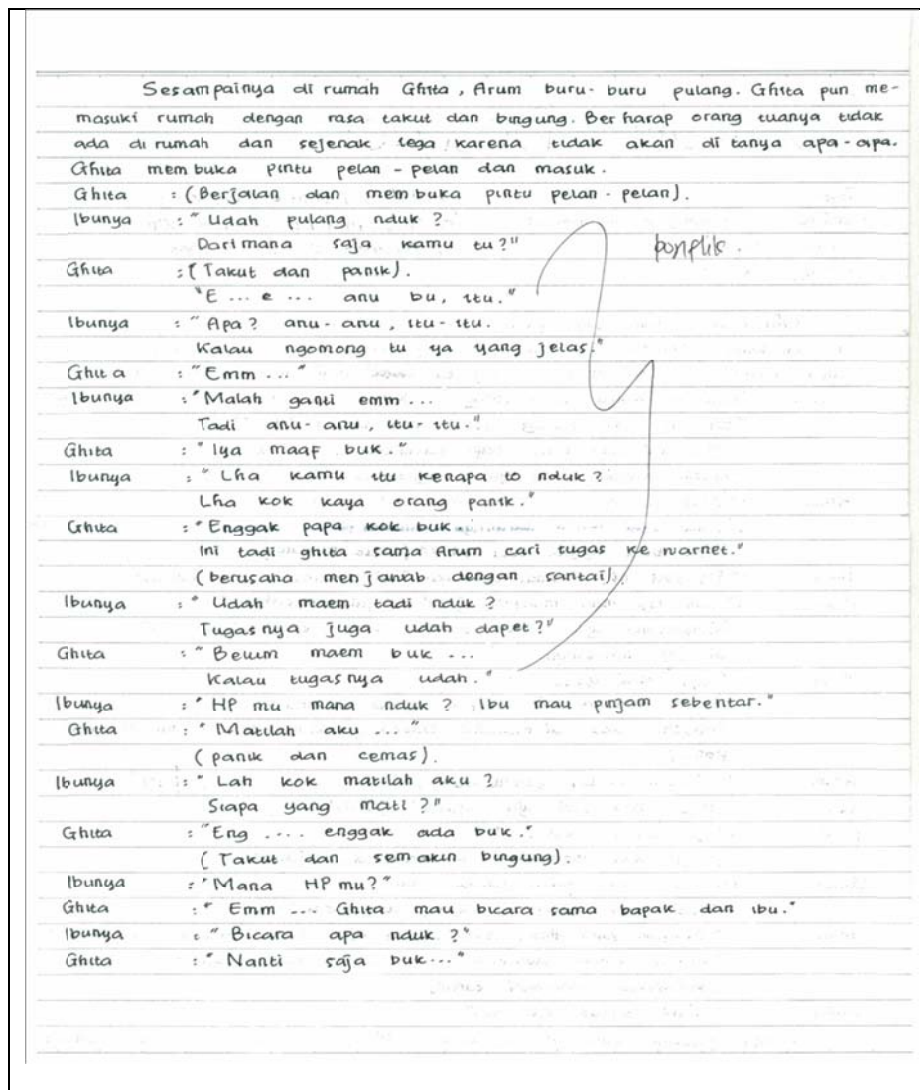 Sesampainya di rumah Ghita, Arum buru-buru pulang. Ghita pun me-
masuki rumah dengan rasa takut dan bingung. Berharap orang tuanya tidak
ada di rumah dan sejenak lega karena tidak akan di tanya apa-apa.
Ghita membuka pintu pelan-pelan dan masuk.
Ghita : (Berjalan dan membuka pintu pelan-pelan).
Ibunya : "Udah pulang nduk ?
Dari mana saja kamu tu?"
konflik.
Ghita : (Takut dan panik).
"E ... e ... anu bu, itu."
Ibunya : "Apa? anu-anu, itu-itu.
Kalau ngomong tu ya yang jelas."
Ghita : "Emm ..."
Ibunya : "Malah ganti emm ...
Tadi anu-anu, itu-itu."
Ghita : "Iya maaf buk."
Ibunya : "Lha kamu itu kenapa to nduk ?
Lha kok kaya orang panik."
Ghita : "Enggak papa kok buk.
Ini tadi ghita sama Arum cari tugas ke warnet."
(berusaha menjawab dengan santai).
Ibunya : "Udah maem tadi nduk ?
Tugasnya juga udah dapet?"
Ghita : "Belum maem buk ...
Kalau tugasnya udah."
Ibunya : "HP mu mana nduk ? Ibu mau pinjam sebentar."
Ghita : "Matilah aku ..."
(panik dan cemas).
Ibunya : "Lah kok matilah aku ?
Siapa yang mati ?"
Ghita : "Eng .... enggak ada buk."
(Takut dan semakin bingung).
Ibunya : "Mana HP mu?"
Ghita : "Emm ... Ghita mau bicara sama bapak dan ibu."
Ibunya : "Bicara apa nduk ?"
Ghita : "Nanti saja buk..."